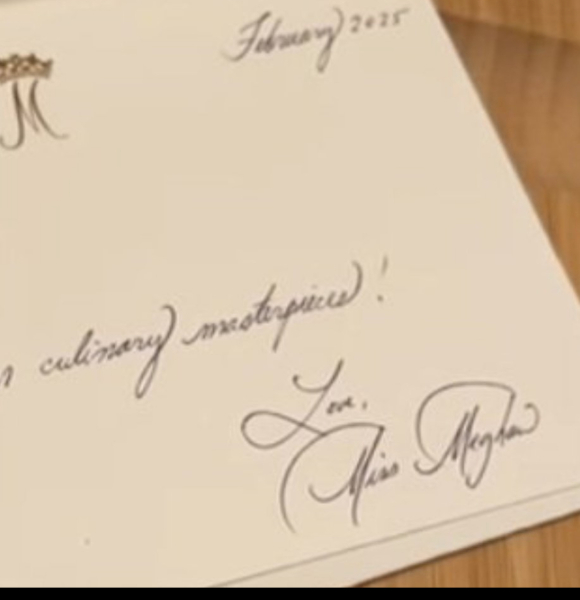 February 2025
M
culinary masterpiece!
Love,
Miss Meghan